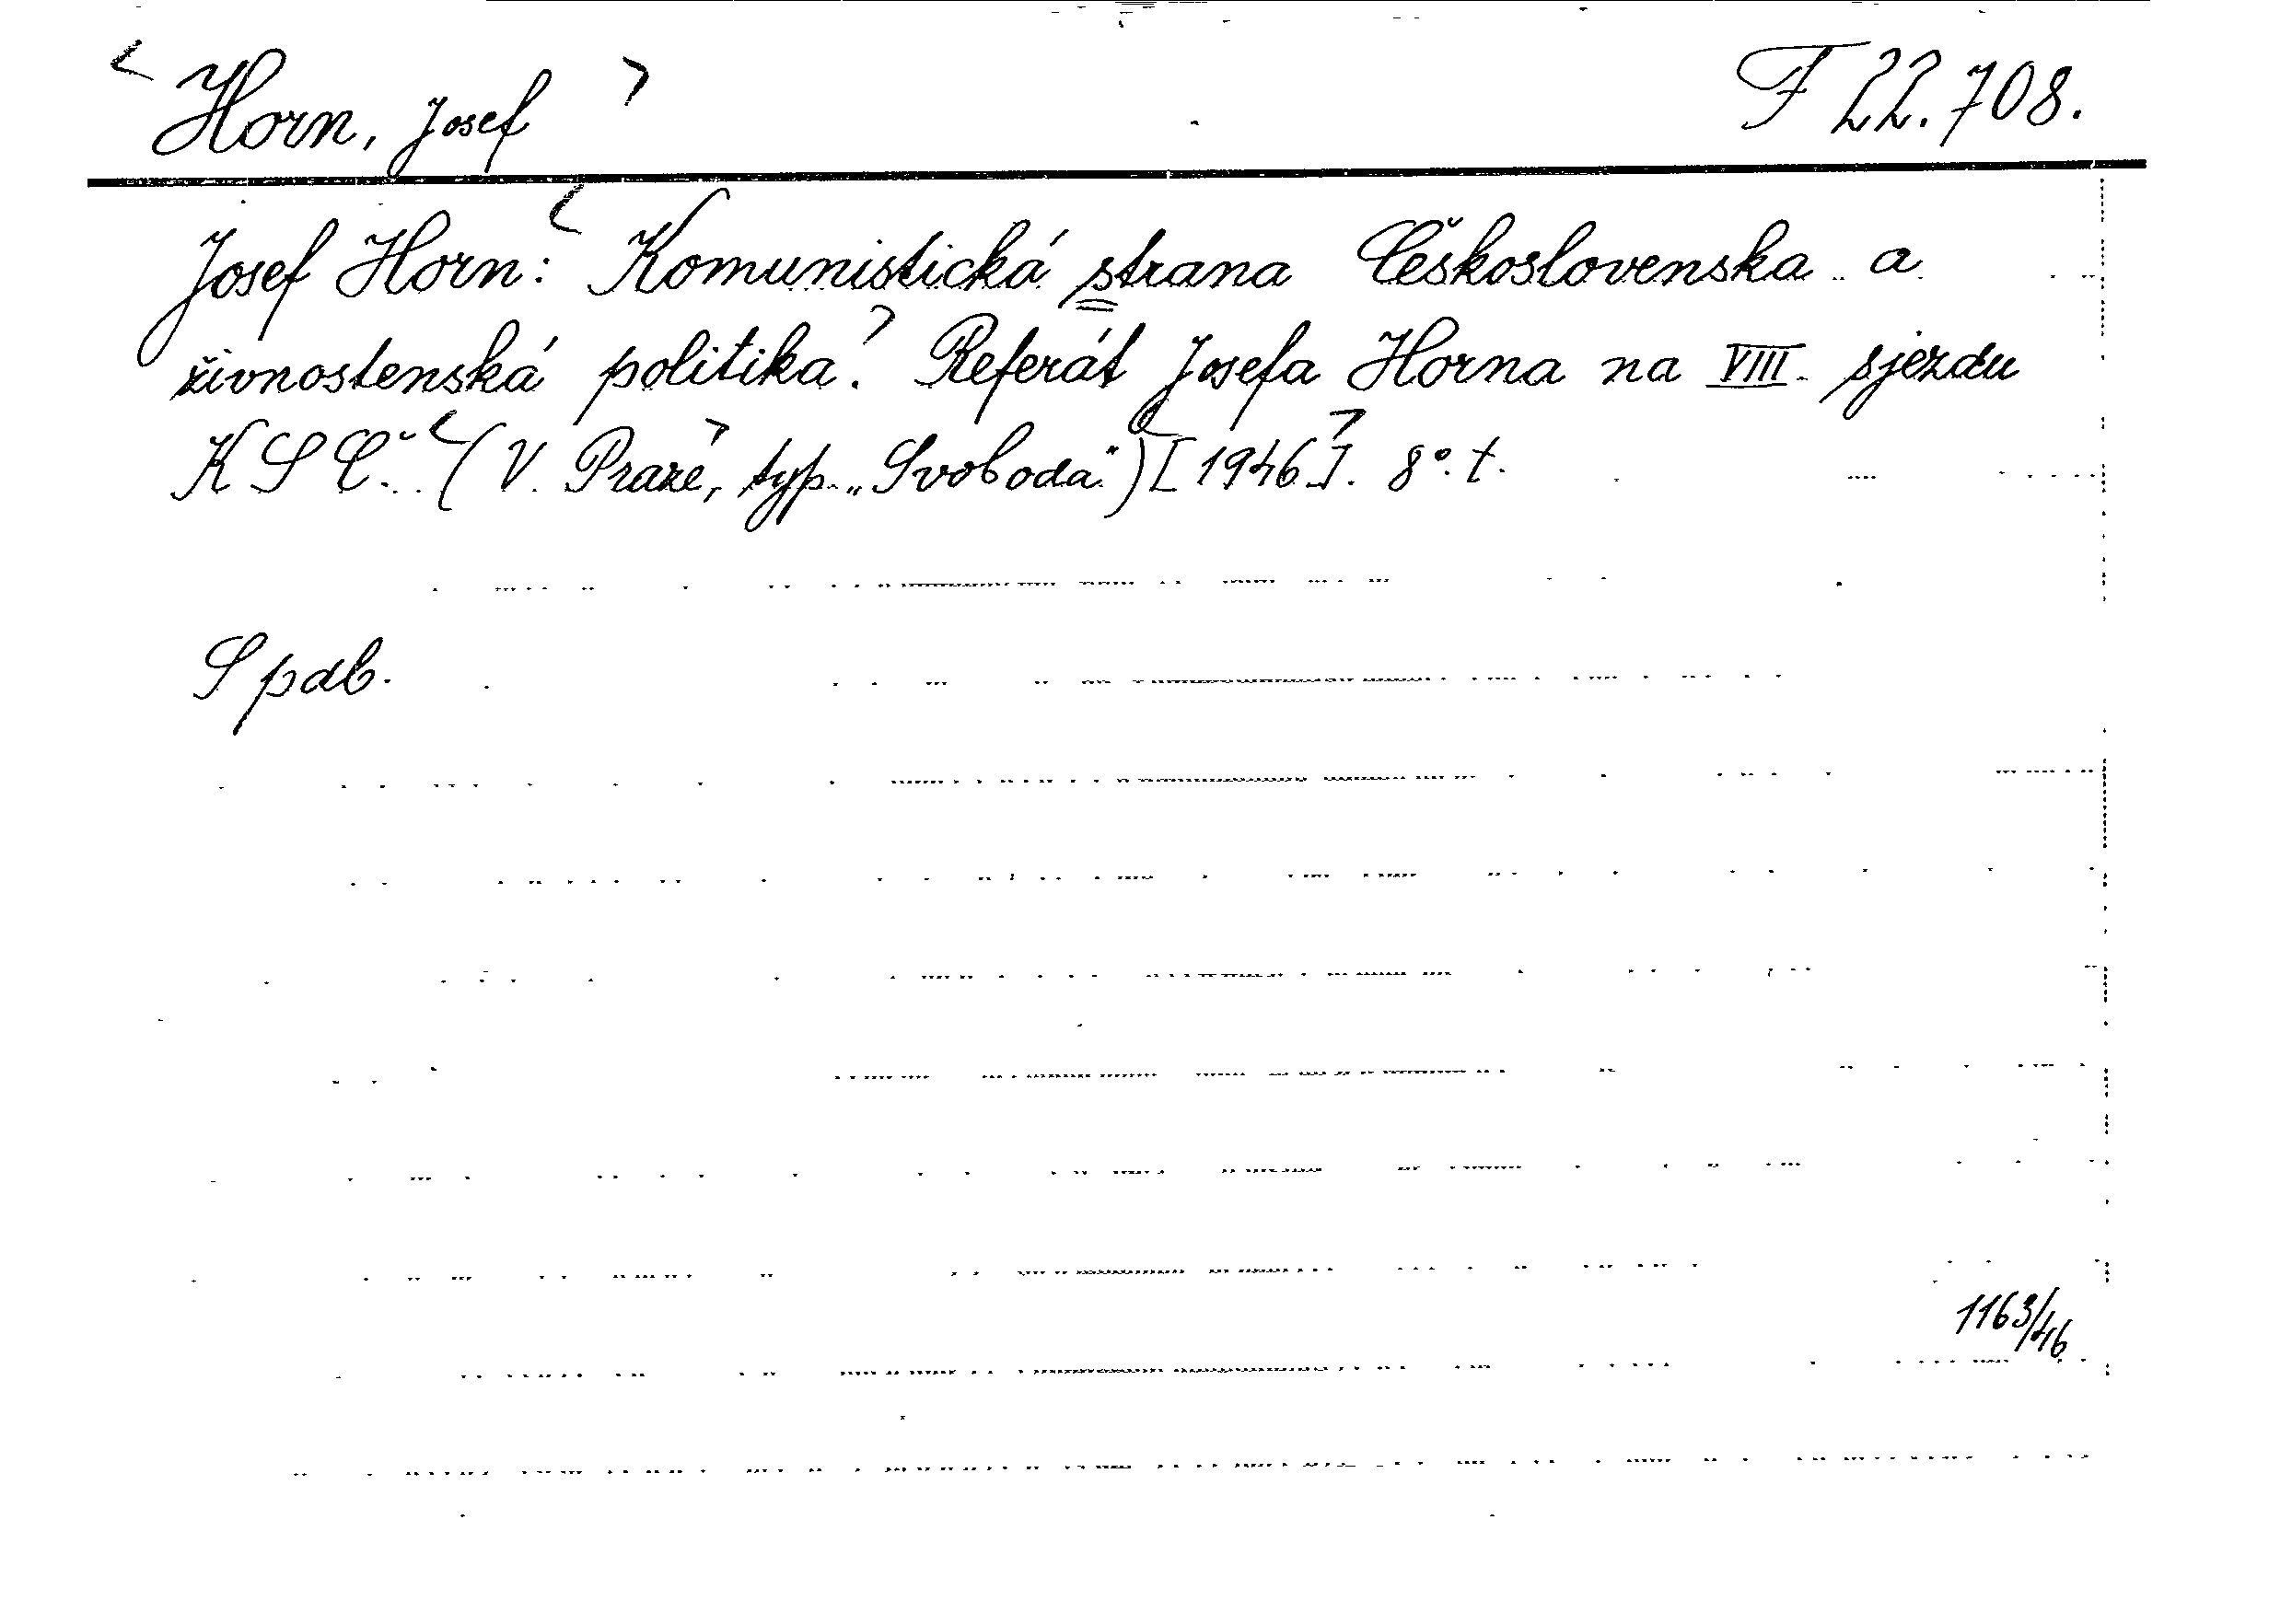 < Horn, Josef > F 22.708.
Josef Horn: < Komunistická strana Československa a
živnostenská politika. > Referát Josefa Horna na VIII. sjezdu
KSČ. < (V Praze, > typ. „Svoboda") [< 1946 >]. 8°. t.
S pdb.
1163/46